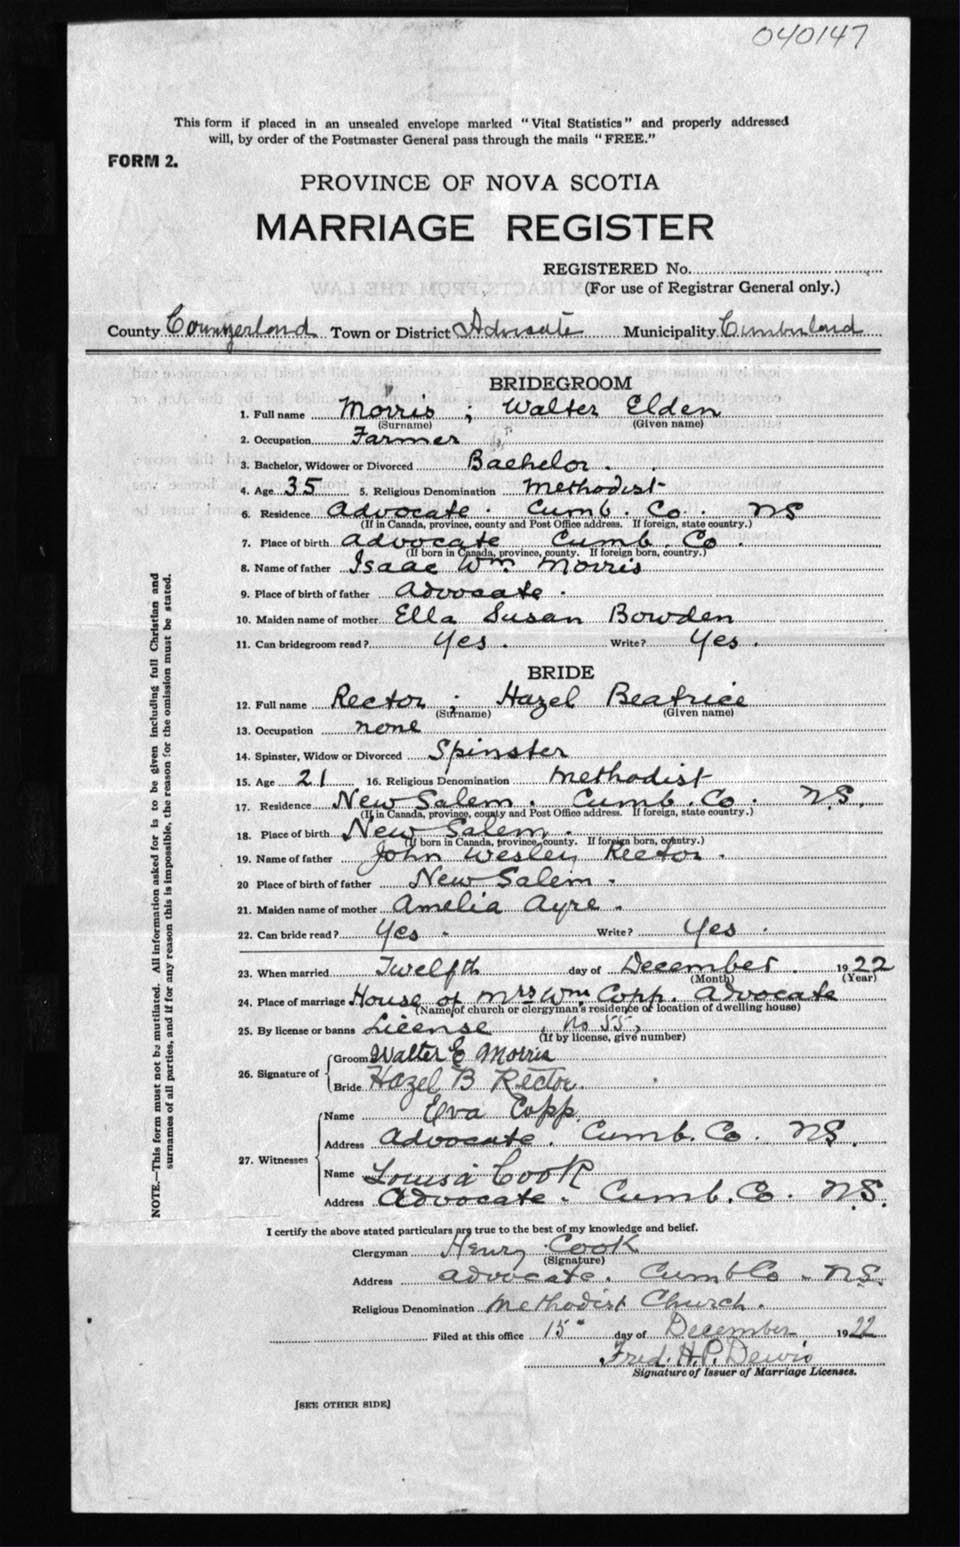 040147
This form if placed in an unsealed envelope marked "Vital Statistics" and properly addressed
will, by order of the Postmaster General pass through the mails "FREE."
FORM 2.
PROVINCE OF NOVA SCOTIA
MARRIAGE REGISTER
REGISTERED No.
(For use of Registrar General only.)
County Town or District Advocate Municipality Cumberland
BRIDEGROOM
1. Full name Morris ; Walter Elden
(Surname) (Given name)
2. Occupation Farmer
3. Bachelor, Widower or Divorced Bachelor.
4. Age 35 5. Religious Denomination Methodist
6. Residence Advocate. Cumb. Co. NS
(If in Canada, province, county and Post Office address. If foreign, state country.)
7. Place of birth Advocate Cumb. Co.
(If born in Canada, province, county. If foreign born, country.)
8. Name of father Isaac Wm. Morris
9. Place of birth of father Advocate.
10. Maiden name of mother Ella Susan Bowden
11. Can bridegroom read? Yes. Write? Yes.
BRIDE
12. Full name Rector ; Hazel Beatrice
(Surname) (Given name)
13. Occupation none
14. Spinster, Widow or Divorced Spinster
15. Age 21 16. Religious Denomination Methodist
17. Residence New Salem. Cumb. Co. N.S.
(If in Canada, province, county and Post Office address. If foreign, state country.)
18. Place of birth New Salem.
(If born in Canada, province, county. If foreign born, country.)
19. Name of father John Wesley Rector.
20 Place of birth of father New Salem.
21. Maiden name of mother Amelia Ayre.
22. Can bride read? Yes. Write? Yes.
23. When married Twelfth day of December. 1922
(Month) (Year)
24. Place of marriage House of Mrs Wm Copp. Advocate
(Name of church or clergyman's residence or location of dwelling house)
25. By license or banns License, No 55,
(If by license, give number)
26. Signature of
Groom Walter E Morris
Bride Hazel B Rector.
27. Witnesses
Name Eva Copp.
Address Advocate. Cumb. Co. NS.
Name Louisa Cook
Address Advocate. Cumb. Co. NS.
I certify the above stated particulars are true to the best of my knowledge and belief.
Clergyman Henry Cook
(Signature)
Address Advocate. Cumb Co. NS.
Religious Denomination Methodist Church.
Filed at this office 15" day of December, 1922
Fred. H. P. Dewis
Signature of Issuer of Marriage Licenses.
[SEE OTHER SIDE]
NOTE.—This form must not be mutilated. All information asked for is to be given including full Christian and
surnames of all parties, and if for any reason this is impossible, the reason for the omission must be stated.